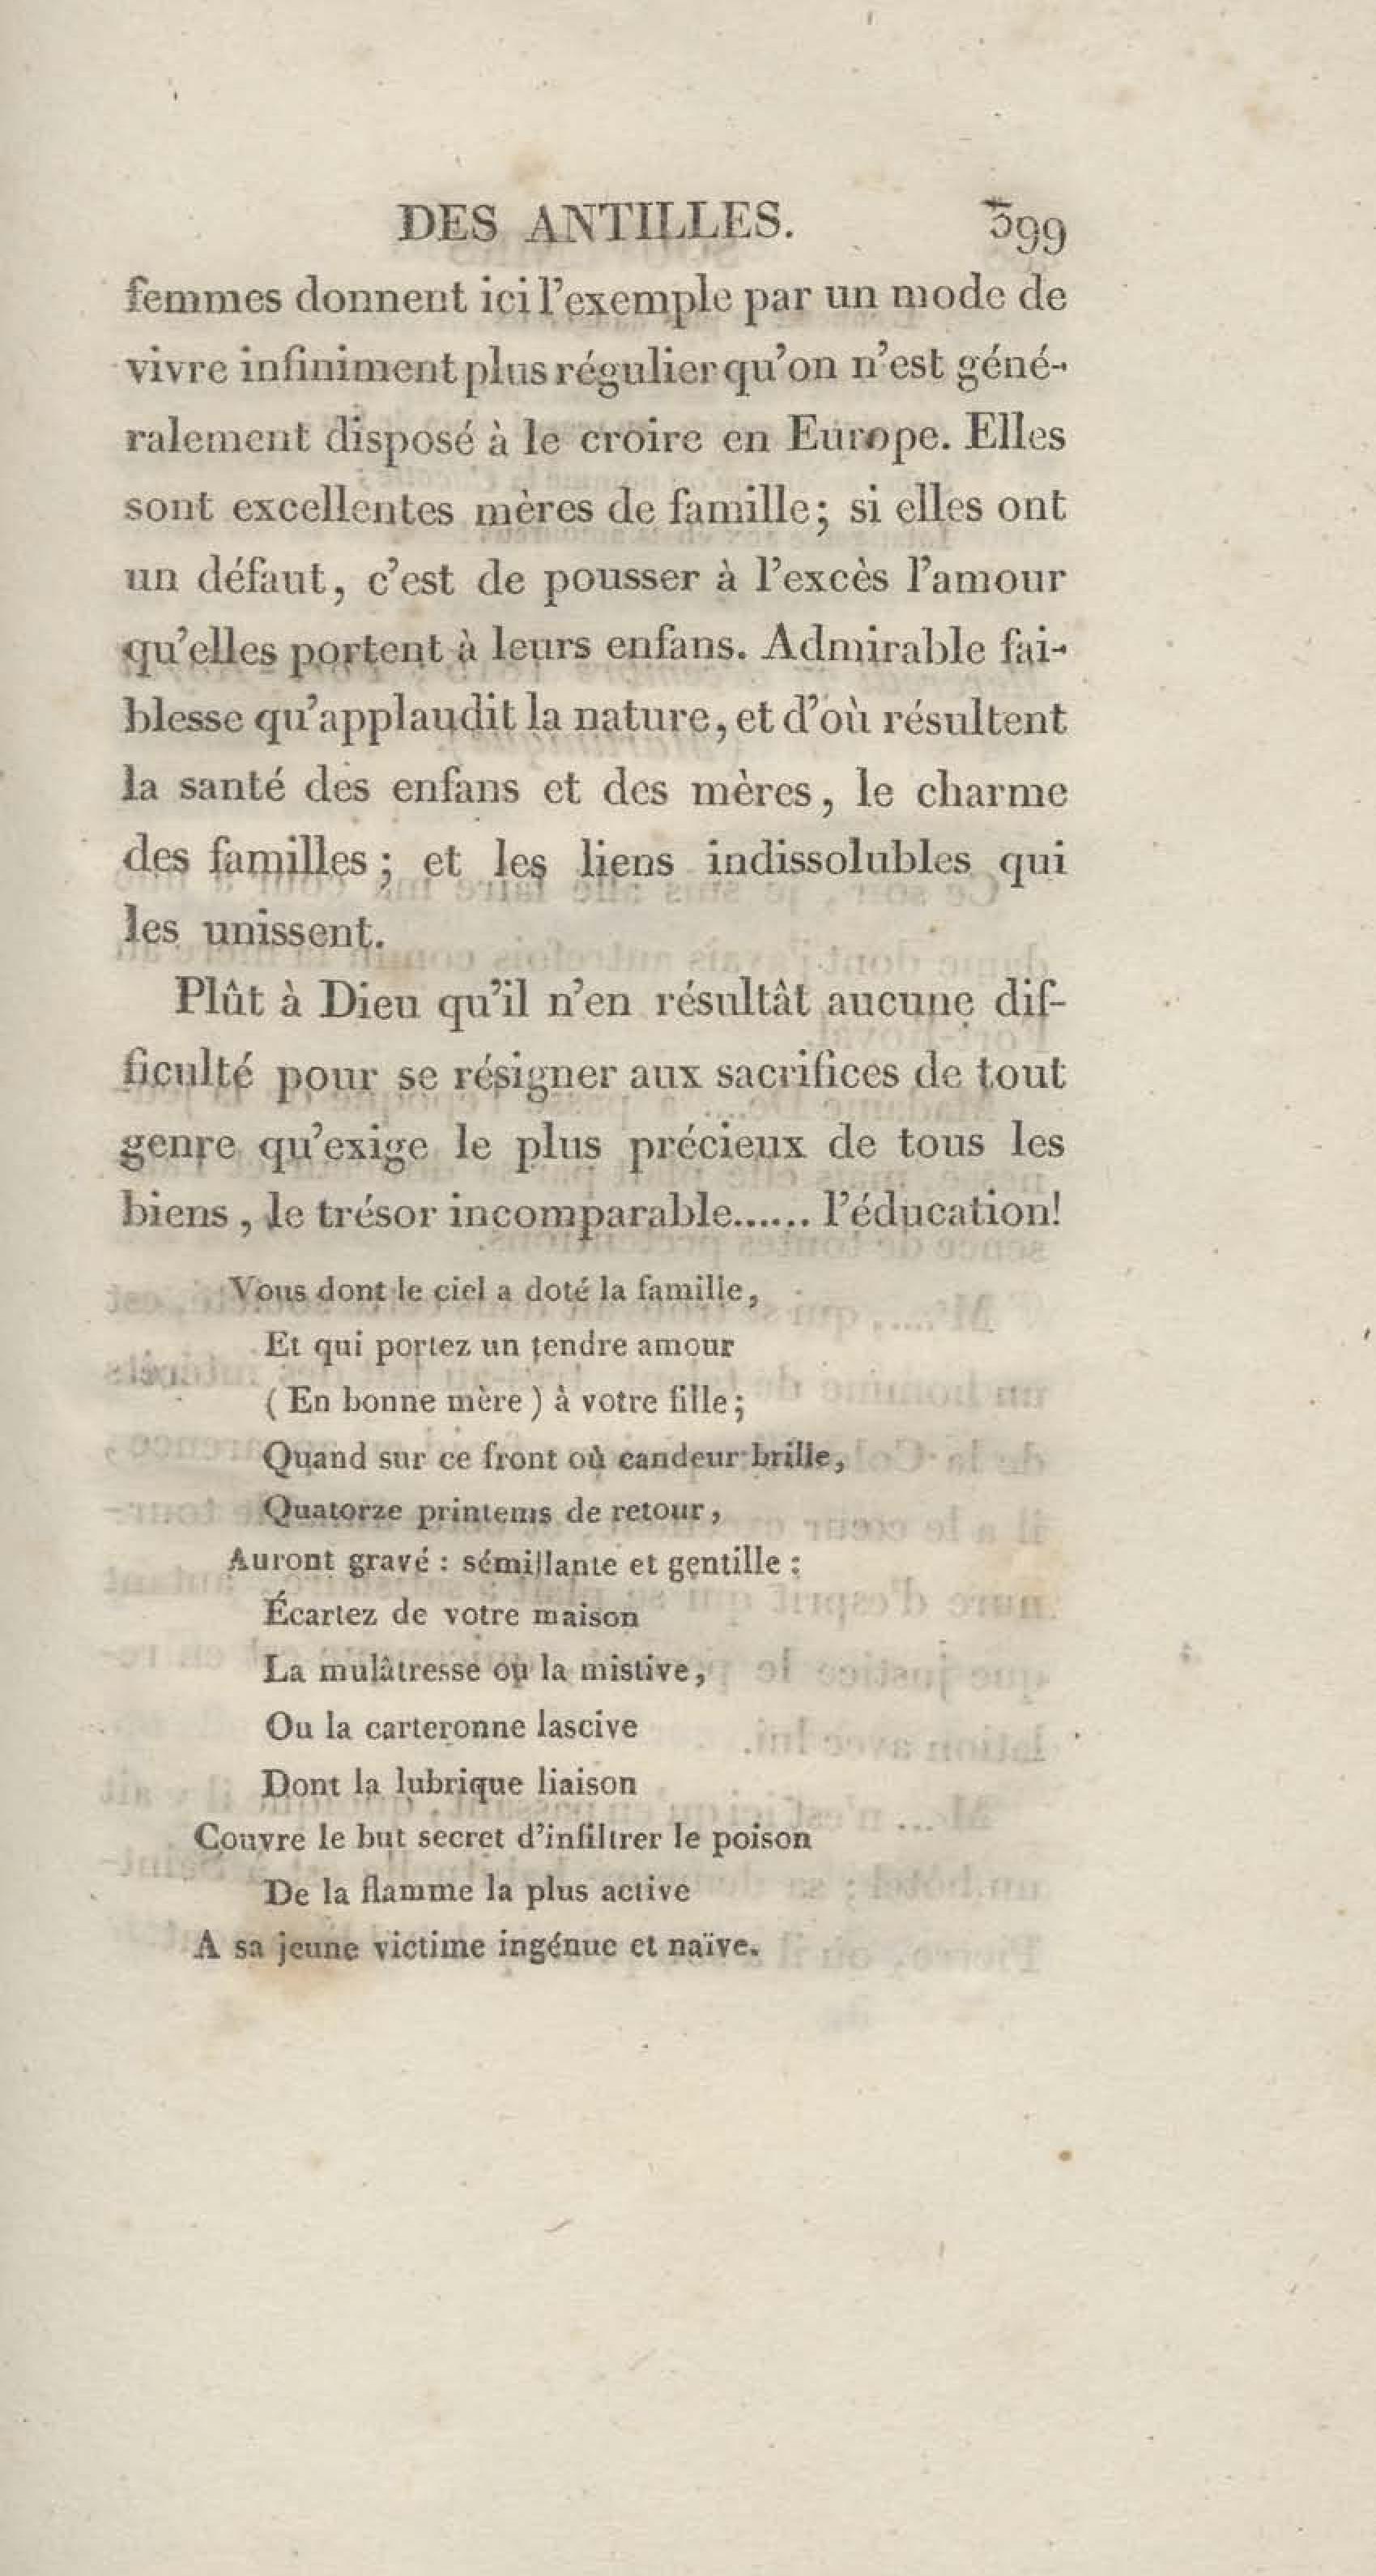 DES ANTILLES. 399
femmes donnent ici l'exemple par un mode de
vivre infiniment plus régulier qu'on n'est géné-
ralement disposé à le croire en Europe. Elles
sont excellentes mères de famille; si elles ont
un défaut, c'est de pousser à l'excès l'amour
qu'elles portent à leurs enfans. Admirable fai-
blesse qu'applaudit la nature, et d'où résultent
la santé des enfans et des mères, le charme
des familles; et les liens indissolubles qui
les unissent.
Plût à Dieu qu'il n'en résultât aucune dif-
ficulté pour se résigner aux sacrifices de tout
genre qu'exige le plus précieux de tous les
biens, le trésor incomparable...... l'éducation!
Vous dont le ciel a doté la famille,
Et qui portez un tendre amour
( En bonne mère ) à votre fille;
Quand sur ce front où candeur brille,
Quatorze printems de retour,
Auront gravé : sémillante et gentille :
Écartez de votre maison
La mulâtresse ou la mistive,
Ou la carteronne lascive
Dont la lubrique liaison
Couvre le but secret d'infiltrer le poison
De la flamme la plus active
A sa jeune victime ingénue et naïve.